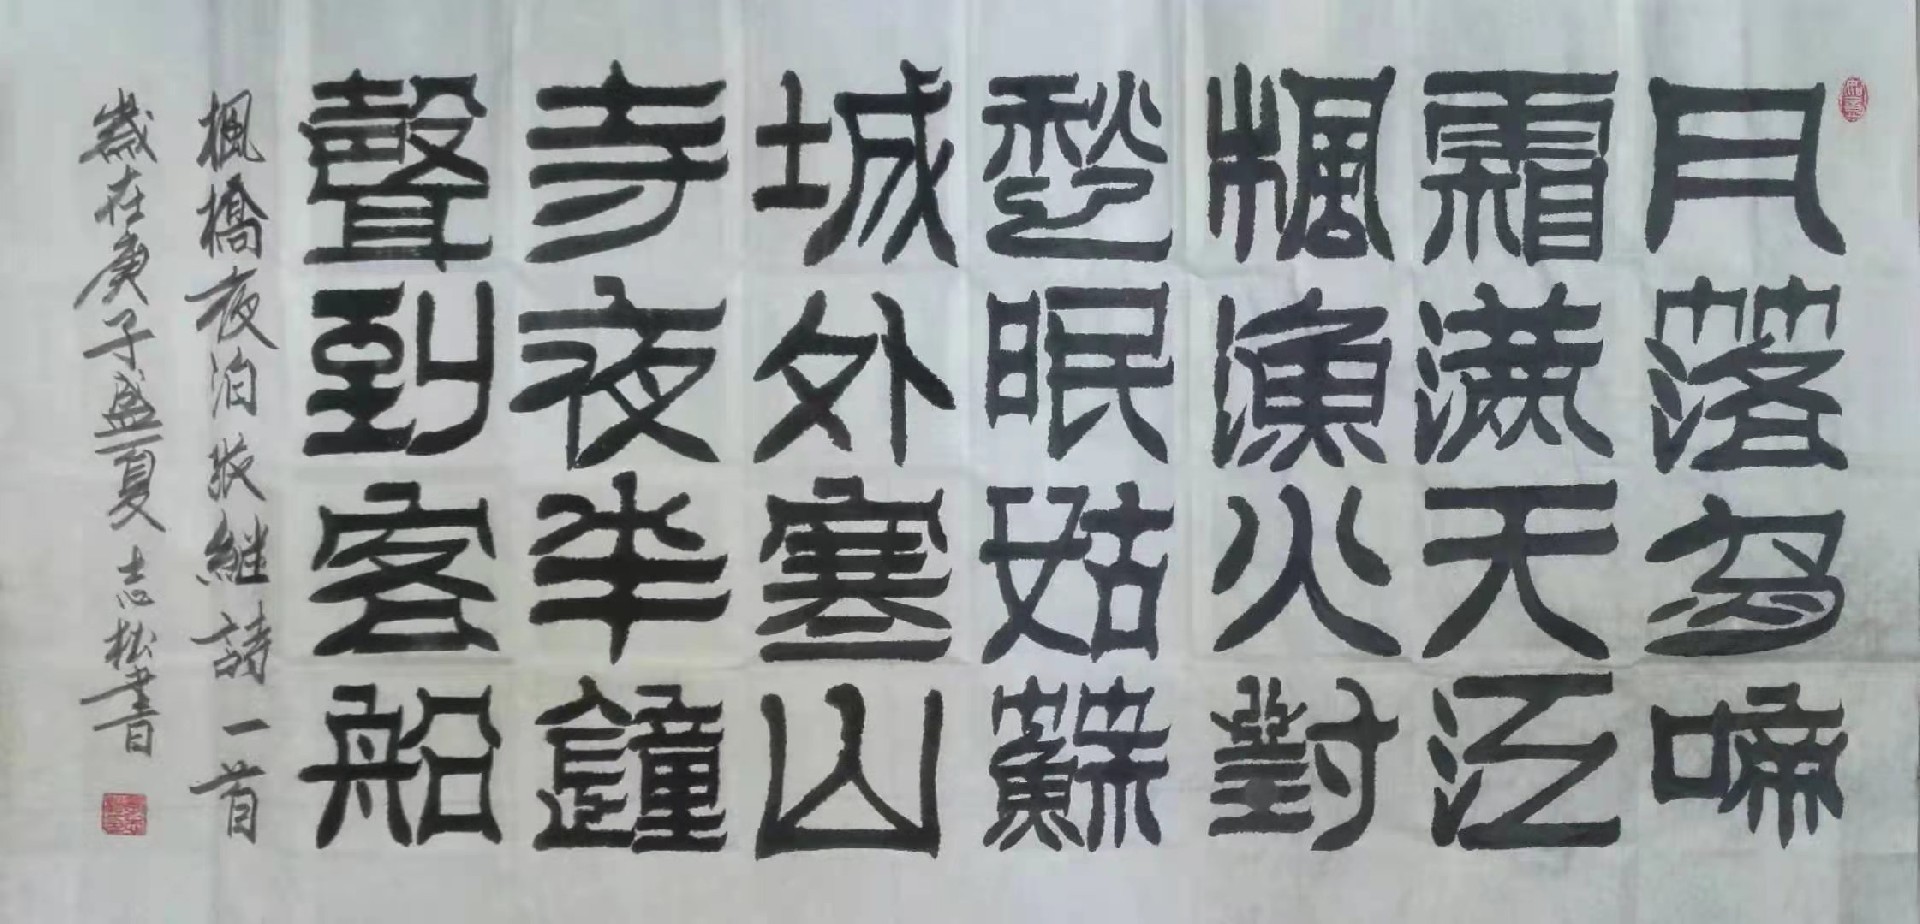 月落烏啼
霜滿天江
楓漁火對
愁眠姑蘇
城外寒山
寺夜半鐘
聲到客船
楓橋夜泊張継詩一首
歲在庚子盛夏志松書